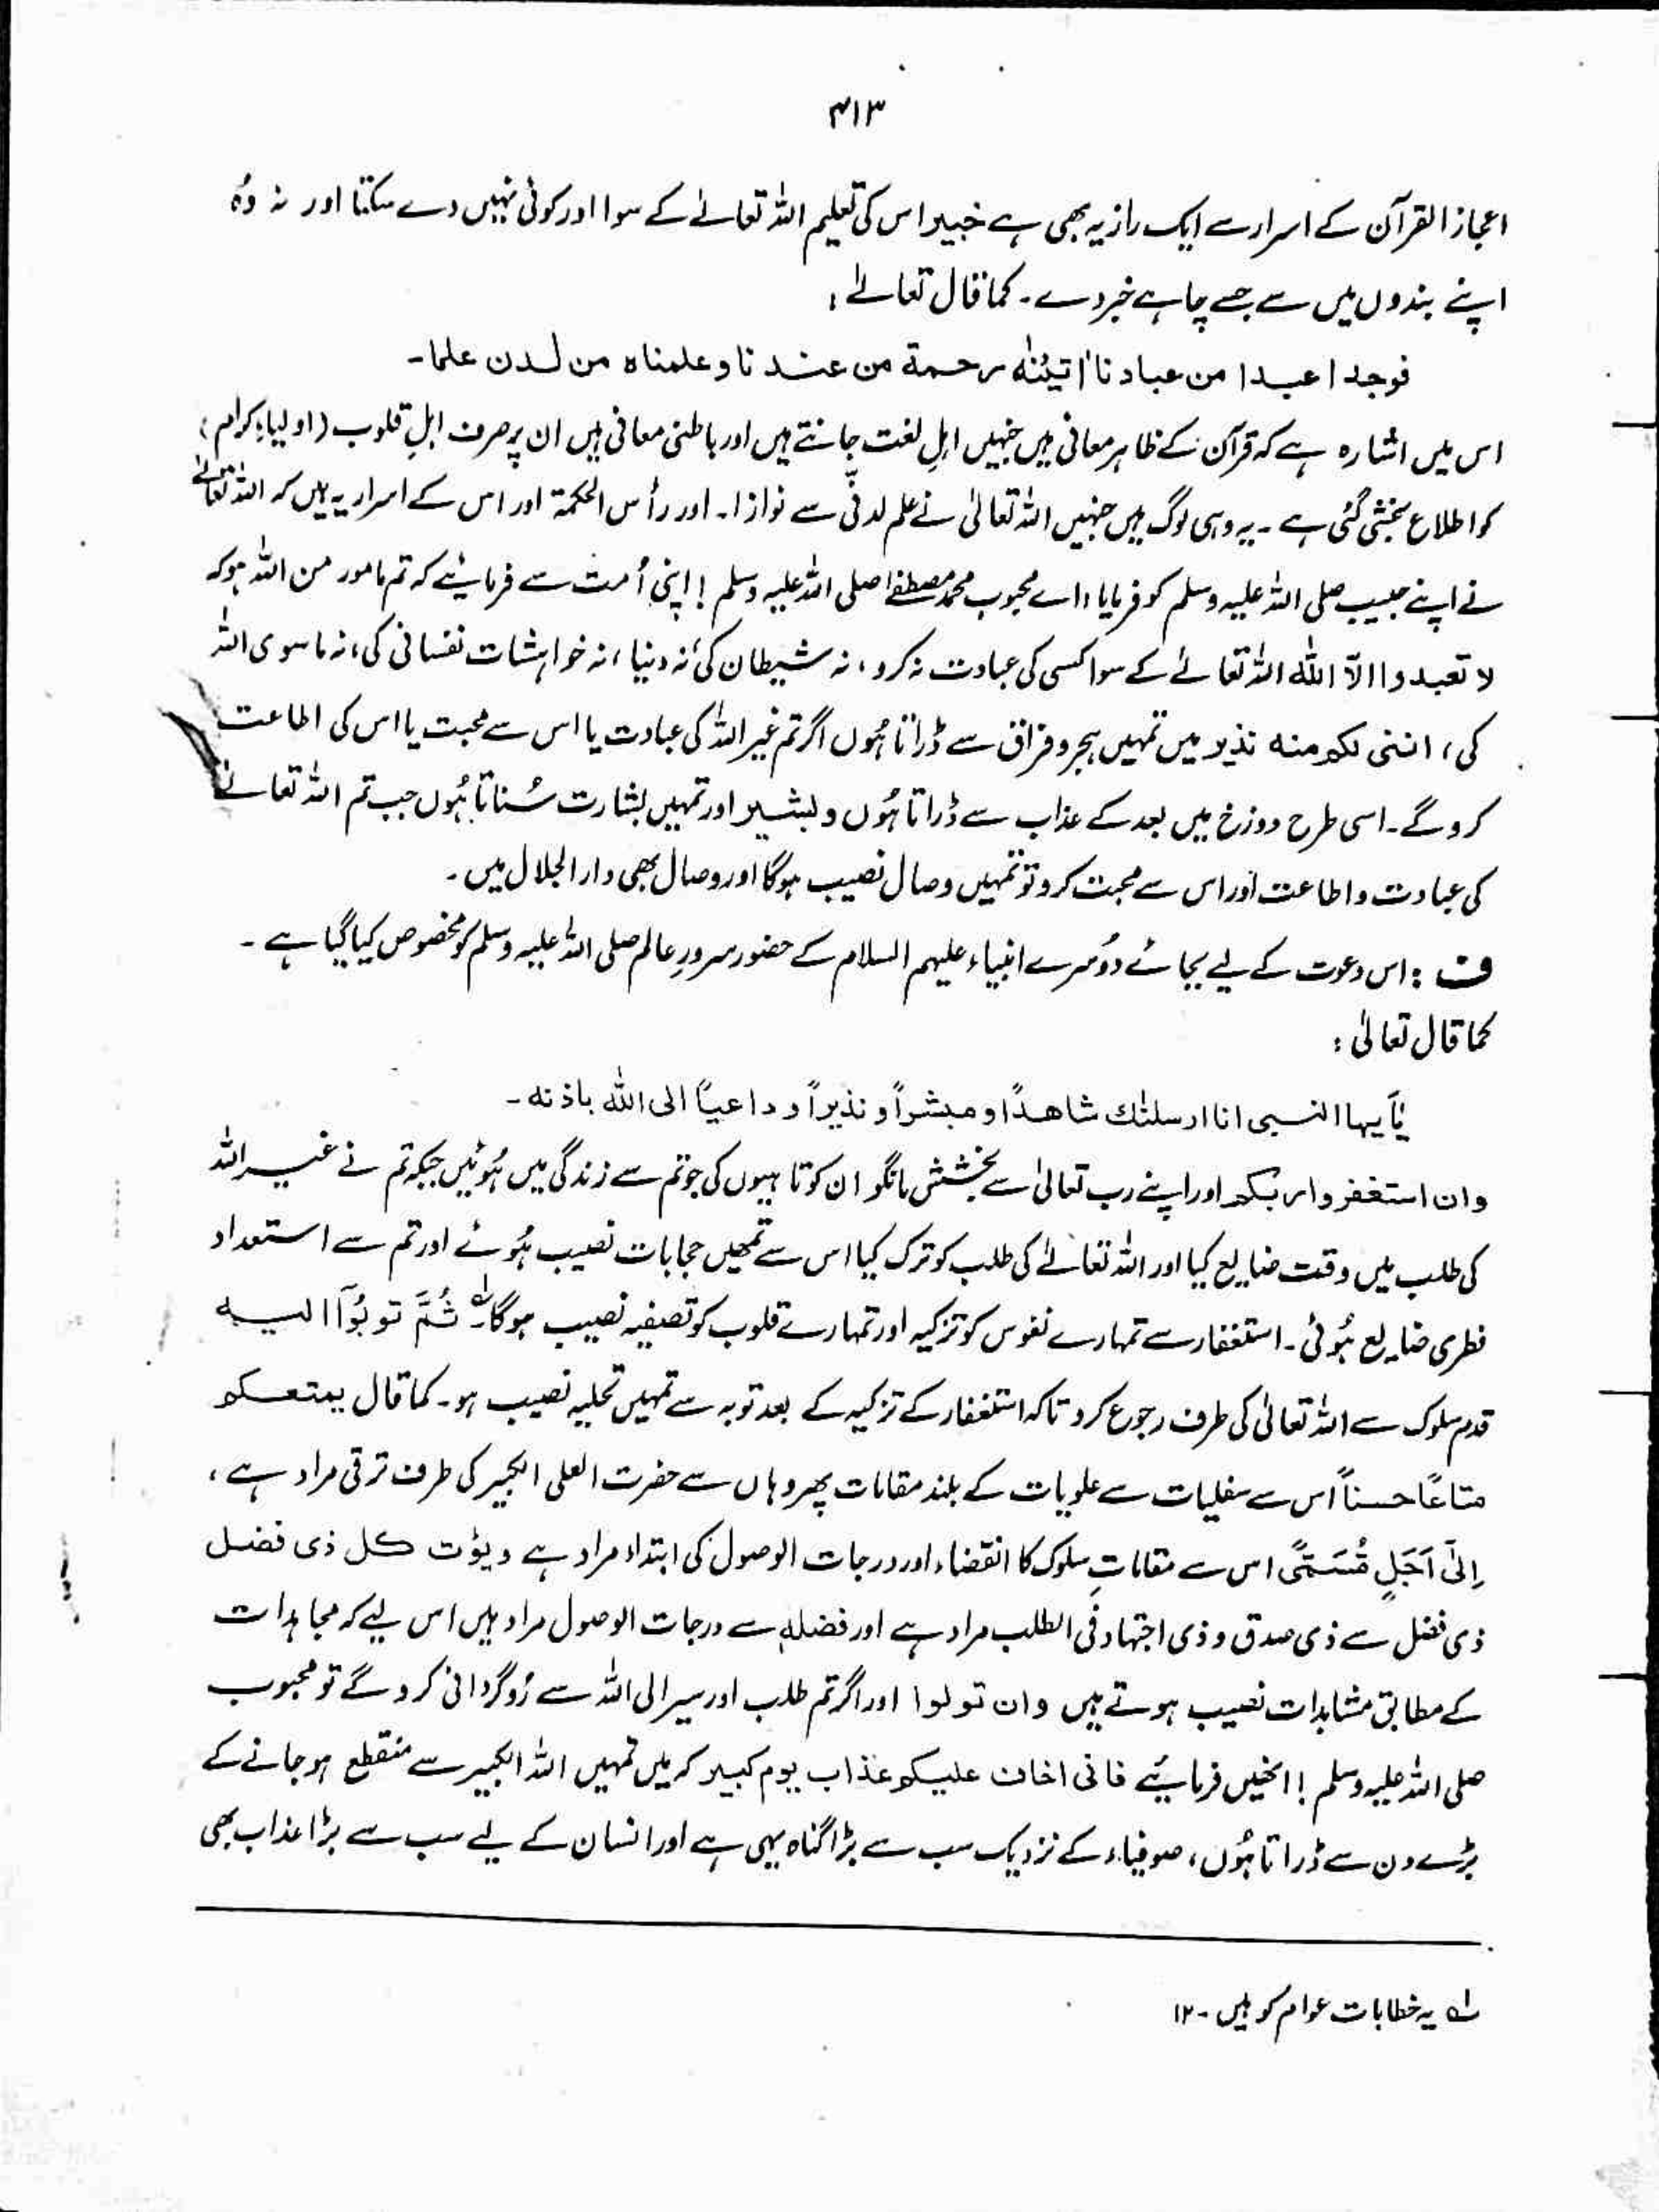 ۴۱۳
اعجاز القرآن کے اسرار سے ایک راز یہ بھی ہے خبیر اس کی تعلیم اللہ تعالےٰ کے سوا اور کوئی نہیں دے سکتا اور نہ وُہ
اپنے بندوں میں سے جسے چاہے خبر دے۔ کما قال تعالےٰ :
فوجدا عبدا من عبادنا اٰتیُنٰہ رحمة من عندنا و علمناہ من لدن علما۔
اس میں اشارہ ہے کہ قرآن کے ظاہر معانی ہیں جنہیں اہلِ لغت جانتے ہیں اور باطنی معانی ہیں ان پر صرف اہلِ قلوب (اولیاءِ کرام)
کو اطلاع بخشی گئی ہے ۔ یہ وہی لوگ ہیں جنہیں اللہ تعالیٰ نے علم لدنّی سے نوازا۔ اور رأس الحکمۃ اور اس کے اسرار یہ ہیں کہ اللہ تعالےٰ
نے اپنے حبیب صلی اللہ علیہ وسلم کو فرمایا ، اے محبوب محمد مصطفےٰ صلی اللہ علیہ وسلم ! اپنی اُمت سے فرمائیے کہ تم مامور من اللہ ہو کہ
لا تعبدوا الّا اللہ اللہ تعالےٰ کے سوا کسی کی عبادت نہ کرو ، نہ شیطان کی، نہ دنیا ، نہ خواہشات نفسانی کی، نہ ماسوی اللہ
کی ، اننی لکم منہ نذیر میں تمہیں ہجر و فراق سے ڈراتا ہُوں اگر تم غیر اللہ کی عبادت یا اس سے محبت یا اس کی اطاعت
کرو گے۔ اسی طرح دوزخ میں بعد کے عذاب سے ڈراتا ہُوں و بشیر اور تمہیں بشارت سُناتا ہُوں جب تم اللہ تعالےٰ
کی عبادت و اطاعت اور اس سے محبت کرو تو تمہیں وصال نصیب ہوگا اور وصال بھی دار الجلال میں ۔
ف : اس دعوت کے لیے بجائے دُوسرے انبیاء علیہم السلام کے حضور سرورِ عالم صلی اللہ علیہ وسلم کو مخصوص کیا گیا ہے ۔
کما قال تعالیٰ :
یٰآیہا النبی انا ارسلنٰك شاھدًا و مبشراً و نذیراً و داعیًا الی اللہ باذنہ ۔
وان استغفروا ربکم اور اپنے رب تعالیٰ سے بخشش مانگو ان کوتاہیوں کی جو تم سے زندگی میں ہُوئیں جبکہ تم نے غیر اللہ
کی طلب میں وقت ضایع کیا اور اللہ تعالےٰ کی طلب کو ترک کیا اس سے تمھیں حجابات نصیب ہُوئے اور تم سے استعداد
فطری ضایع ہُوئی ۔ استغفار سے تمہارے نفوس کو تزکیہ اور تمہارے قلوب کو تصفیہ نصیب ہوگا۔ لہ ثُمَّ توبُوْآ الیہ
قدم سلوک سے اللہ تعالیٰ کی طرف رجوع کرو تاکہ استغفار کے تزکیہ کے بعد توبہ سے تمہیں تحلیہ نصیب ہو۔ کما قال یمتعکم
متاعًا حسناً اس سے سفلیات سے علویات کے بلند مقامات پھر وہاں سے حضرت العلی الکبیر کی طرف ترقی مراد ہے ،
اِلٰٓی اَجَلٍ مُّسَمًّی اس سے مقاماتِ سلوک کا انقضاء اور درجات الوصول کی ابتداء مراد ہے و یؤت کل ذی فضل
ذی فضل سے ذی صدق و ذی اجتہاد فی الطلب مراد ہے اور فضلہ سے درجات الوصول مراد ہیں اس لیے کہ مجاہدات
کے مطابق مشاہدات نصیب ہوتے ہیں وان تولوا اور اگر تم طلب اور سیر الی اللہ سے رُوگردانی کرو گے تو محبوب
صلی اللہ علیہ وسلم ! انھیں فرمائیے فانی اخاف علیکم عذاب یوم کبیر کہ میں تمہیں اللہ الکبیر سے منقطع ہو جانے کے
بڑے دن سے ڈراتا ہُوں ، صوفیاء کے نزدیک سب سے بڑا گناہ یہی ہے اور انسان کے لیے سب سے بڑا عذاب بھی
لہ یہ خطابات عوام کو ہیں ۔ ۱۲